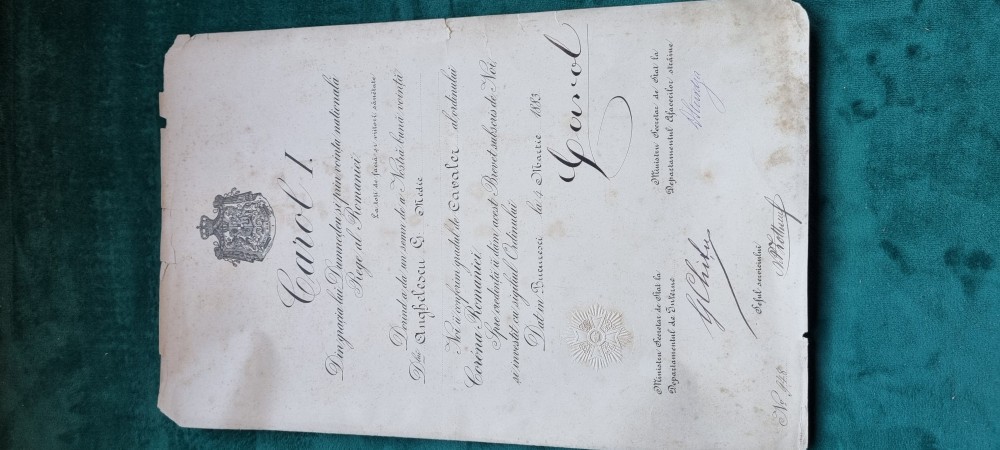 Carol I.
Din grația lui Dumnedeu și prin voința națională
Rege al Romaniei
La toti de faciă și viitori sănătate
Voind a da un semn de a Nostră bună voință
Dlui Anghelescu G. Medic
Noi îi conferim gradul de Cavaler al ordinului
Coróna Romaniei
Spre credință ii dăm acest Brevet subscris de Noi
și investit cu sigiliul Ordinului
Dat in Bucuresci la 4 Martie 1893
Carol
Ministru Secretar de Stat la
Departamentul de Interne
Ministru Secretar de Stat la
Departamentul Afacerilor străine
Șeful serviciului
No